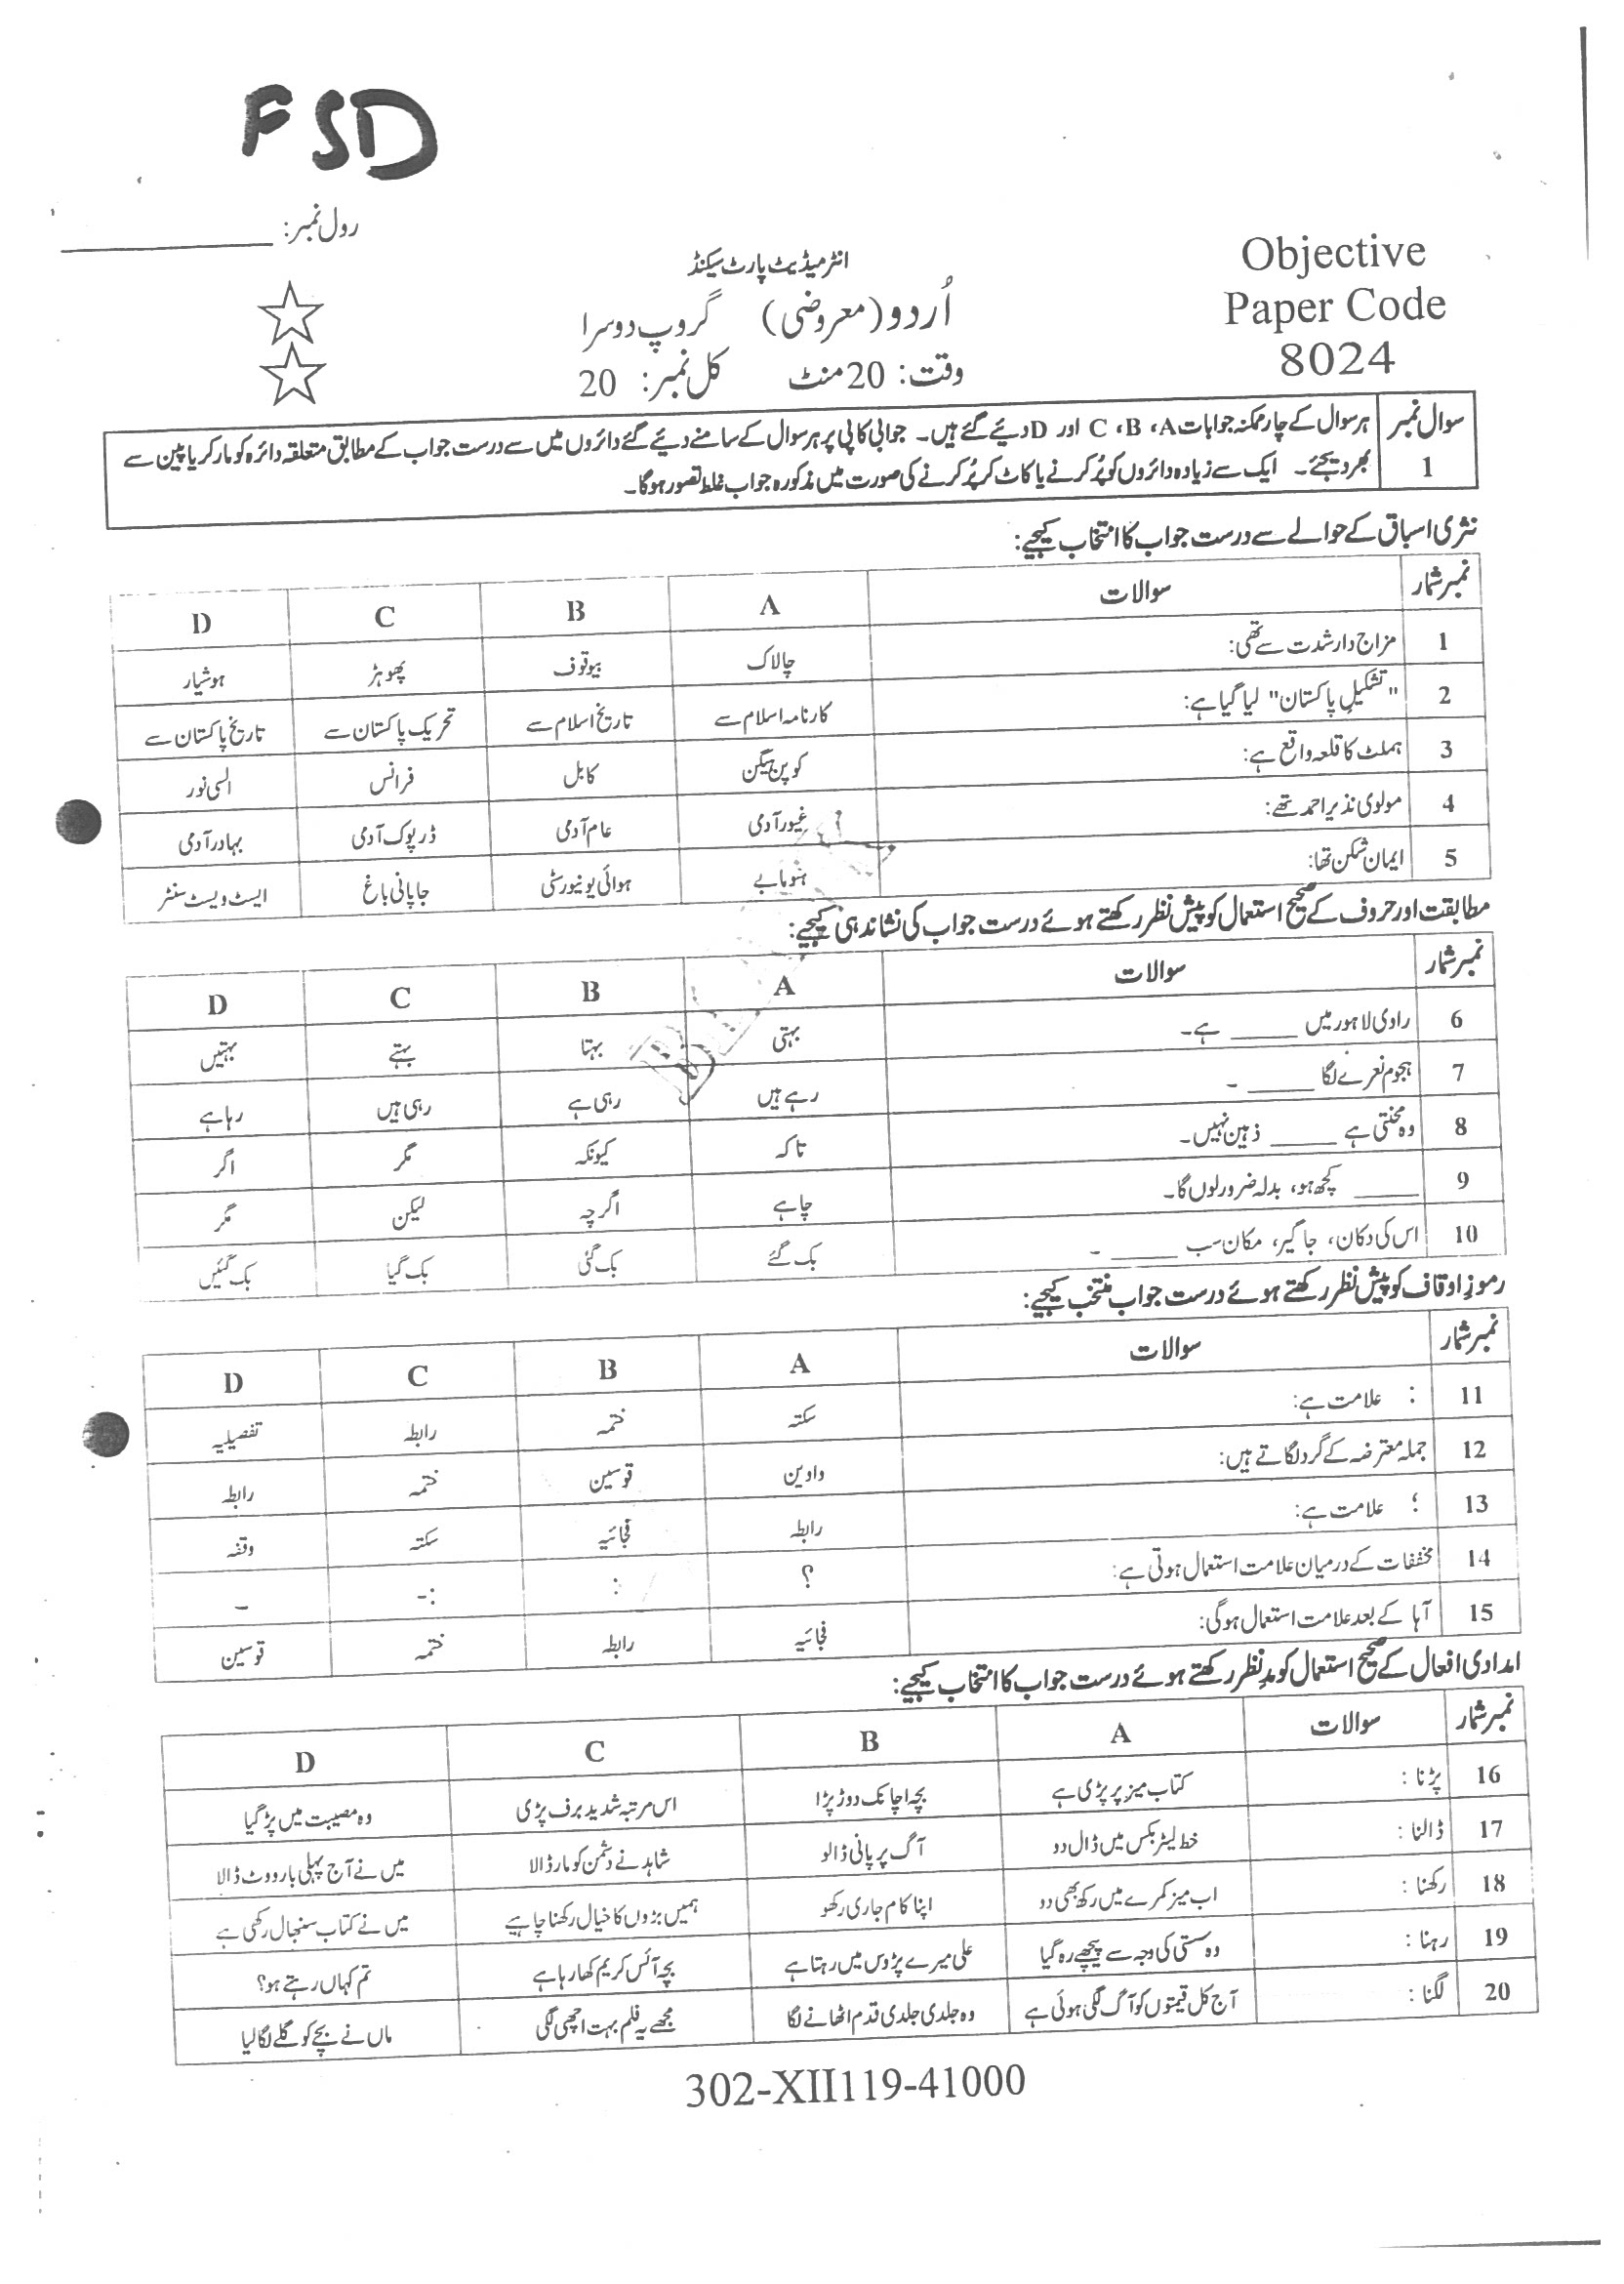 FSD
رول نمبر: ________
انٹرمیڈیٹ پارٹ سیکنڈ
Objective
Paper Code
8024
اُردو (معروضی) گروپ دوسرا
وقت: 20 منٹ کل نمبر: 20
سوال نمبر 1
ہر سوال کے چار ممکنہ جوابات A، B، C اور D دیئے گئے ہیں۔ جوابی کاپی پر ہر سوال کے سامنے دیئے گئے دائروں میں سے درست جواب کے مطابق متعلقہ دائرہ کو مارکر یا پین سے
بھر دیجئے۔ ایک سے زیادہ دائروں کو پُر کرنے یا کاٹ کر پُر کرنے کی صورت میں مذکورہ جواب غلط تصور ہوگا۔
نثری اسباق کے حوالے سے درست جواب کا انتخاب کیجیے:
نمبر شمار سوالات A B C D
1 مزاج دار شدت سے تھی: چالاک بیوقوف پھوہڑ ہوشیار
2 "تشکیلِ پاکستان" لیا گیا ہے: کارنامہ اسلام سے تاریخ اسلام سے تحریک پاکستان سے تاریخ پاکستان سے
3 ہملٹ کا قلعہ واقع ہے: کوپن ہیگن کابل فرانس السی نور
4 مولوی نذیر احمد تھے: غیور آدمی عام آدمی ڈرپوک آدمی بہادر آدمی
5 ایمان شکن تھا: ہنوما بے ہوائی یونیورسٹی جاپانی باغ ایسٹ ویسٹ سنٹر
مطابقت اور حروف کے صحیح استعمال کو پیش نظر رکھتے ہوئے درست جواب کی نشاندہی کیجیے:
نمبر شمار سوالات A B C D
6 راوی لاہور میں ____ ہے۔ بہتی بہتا بہتے بہتیں
7 ہجوم نعرے لگا ____ ۔ رہے ہیں رہی ہے رہی ہیں رہا ہے
8 وہ محنتی ہے ____ ذہین نہیں۔ تاکہ کیونکہ مگر اگر
9 ____ کچھ ہو، بدلہ ضرور لوں گا۔ چاہے اگرچہ لیکن مگر
10 اس کی دکان، جاگیر، مکان سب ____ ۔ بک گئے بک گئی بک گیا بک گئیں
رموزِ اوقاف کو پیش نظر رکھتے ہوئے درست جواب منتخب کیجیے:
نمبر شمار سوالات A B C D
11 : علامت ہے: سکتہ ختمہ رابطہ تفصیلیہ
12 جملہ معترضہ کے گرد لگاتے ہیں: واوین قوسین ختمہ رابطہ
13 ؛ علامت ہے: رابطہ فجائیہ سکتہ وقفہ
14 مخففات کے درمیان علامت استعمال ہوتی ہے: ؟ : :- ۔
15 آہا کے بعد علامت استعمال ہوگی: فجائیہ رابطہ ختمہ قوسین
امدادی افعال کے صحیح استعمال کو مدِنظر رکھتے ہوئے درست جواب کا انتخاب کیجیے:
نمبر شمار سوالات A B C D
16 پڑنا: کتاب میز پر پڑی ہے بچہ اچانک دوڑ پڑا اس مرتبہ شدید برف پڑی وہ مصیبت میں پڑ گیا
17 ڈالنا: خط لیٹر بکس میں ڈال دو آگ پر پانی ڈالو شاہد نے دشمن کو مار ڈالا میں نے آج پہلی بار ووٹ ڈالا
18 رکھنا: اب میز کمرے میں رکھ بھی دو اپنا کام جاری رکھو ہمیں بڑوں کا خیال رکھنا چاہیے میں نے کتاب سنبھال رکھی ہے
19 رہنا: وہ سستی کی وجہ سے پیچھے رہ گیا علی میرے پڑوس میں رہتا ہے بچہ آئس کریم کھا رہا ہے تم کہاں رہتے ہو؟
20 لگنا: آج کل قیمتوں کو آگ لگی ہوئی ہے وہ جلدی جلدی قدم اٹھانے لگا مجھے یہ فلم بہت اچھی لگی ماں نے بچے کو گلے لگا لیا
302-XII119-41000